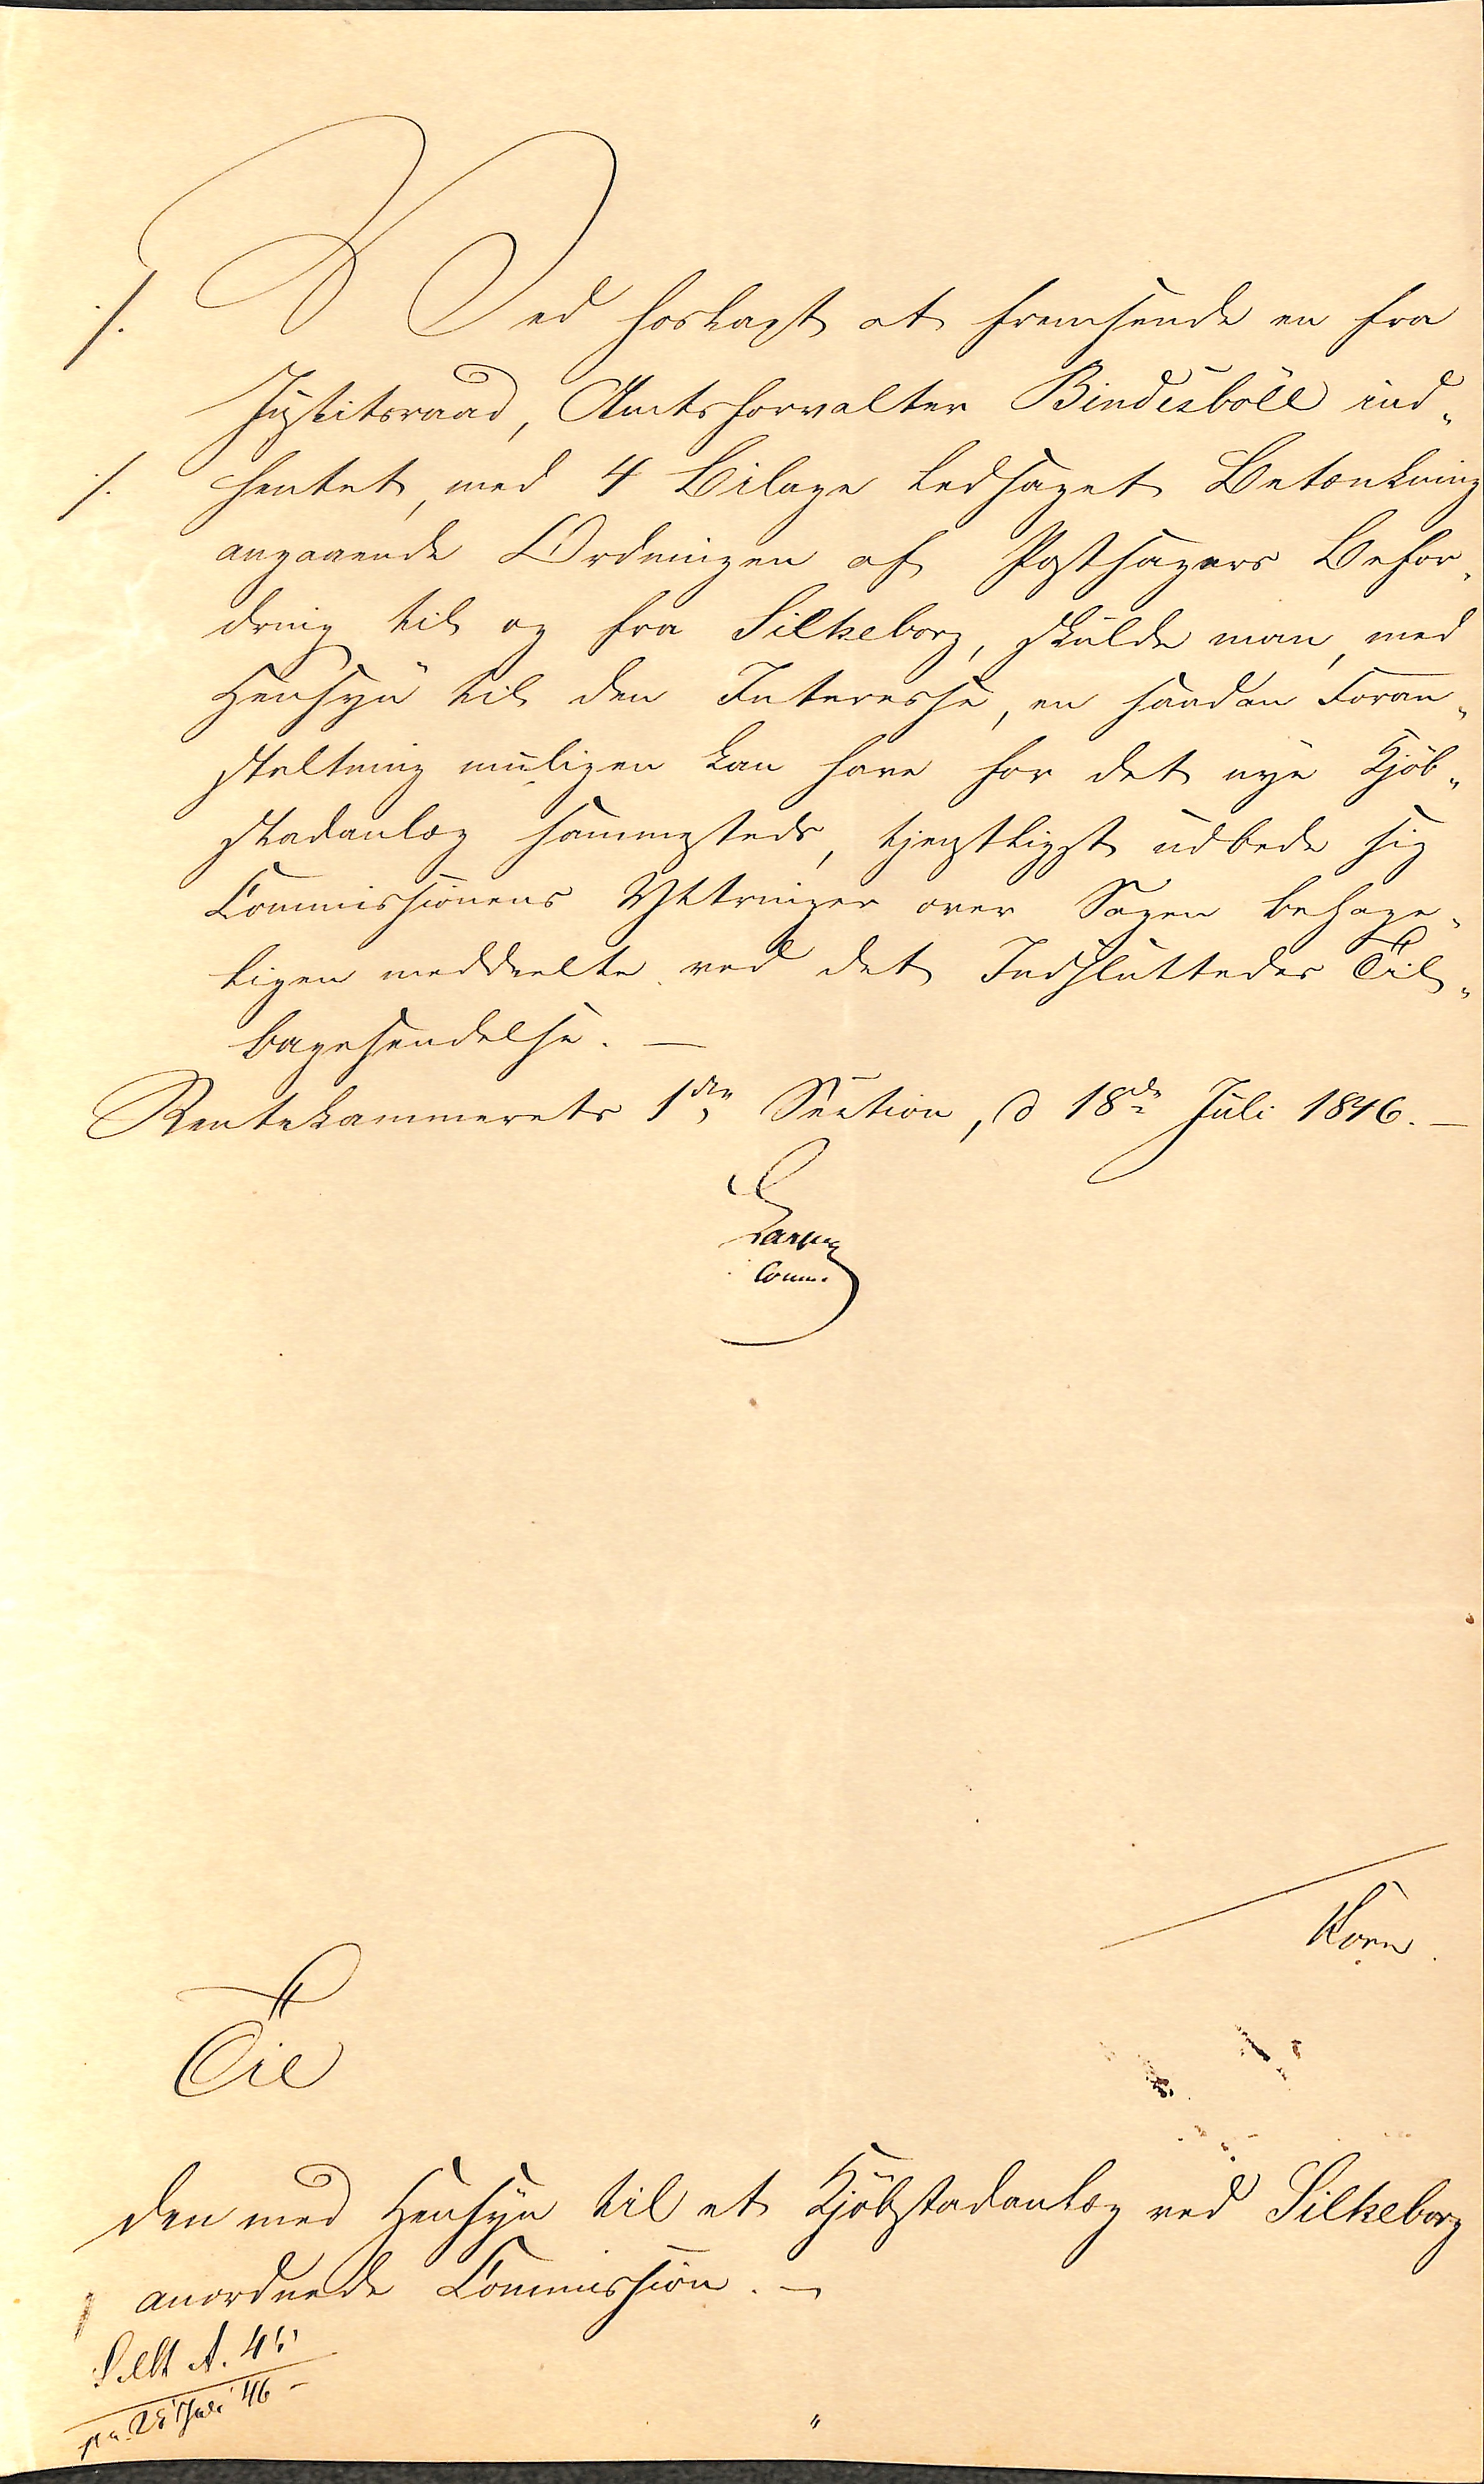 ./. Ved hoslagt at fremsende en fra
Justitsraad, Amtsforvalter Bindesböll ind-
./. hentet, med 4 Bilage ledsaget Betænkning
angaaende Ordningen af Postsagers Befor-
dring til og fra Silkeborg, skulde man, med
Hensyn til den Interesse, en saadan Foran-
staltning muligen kan have for det nye Kjöb-
stadanlæg sammesteds, tjenstligst udbede sig
Commissionens Yttringer over Sagen behage-
ligen meddeelte ved det Indsluttedes Til-
bagesendelse. —
Rentekammerets 1ste Section, d 18de Juli 1846. —
Larsen
Comm.
Korn.
Til
den med Hensyn til et Kjöbstadanlæg ved Silkeborg
anordnede Commission. —
A. 45
Juli 46 –